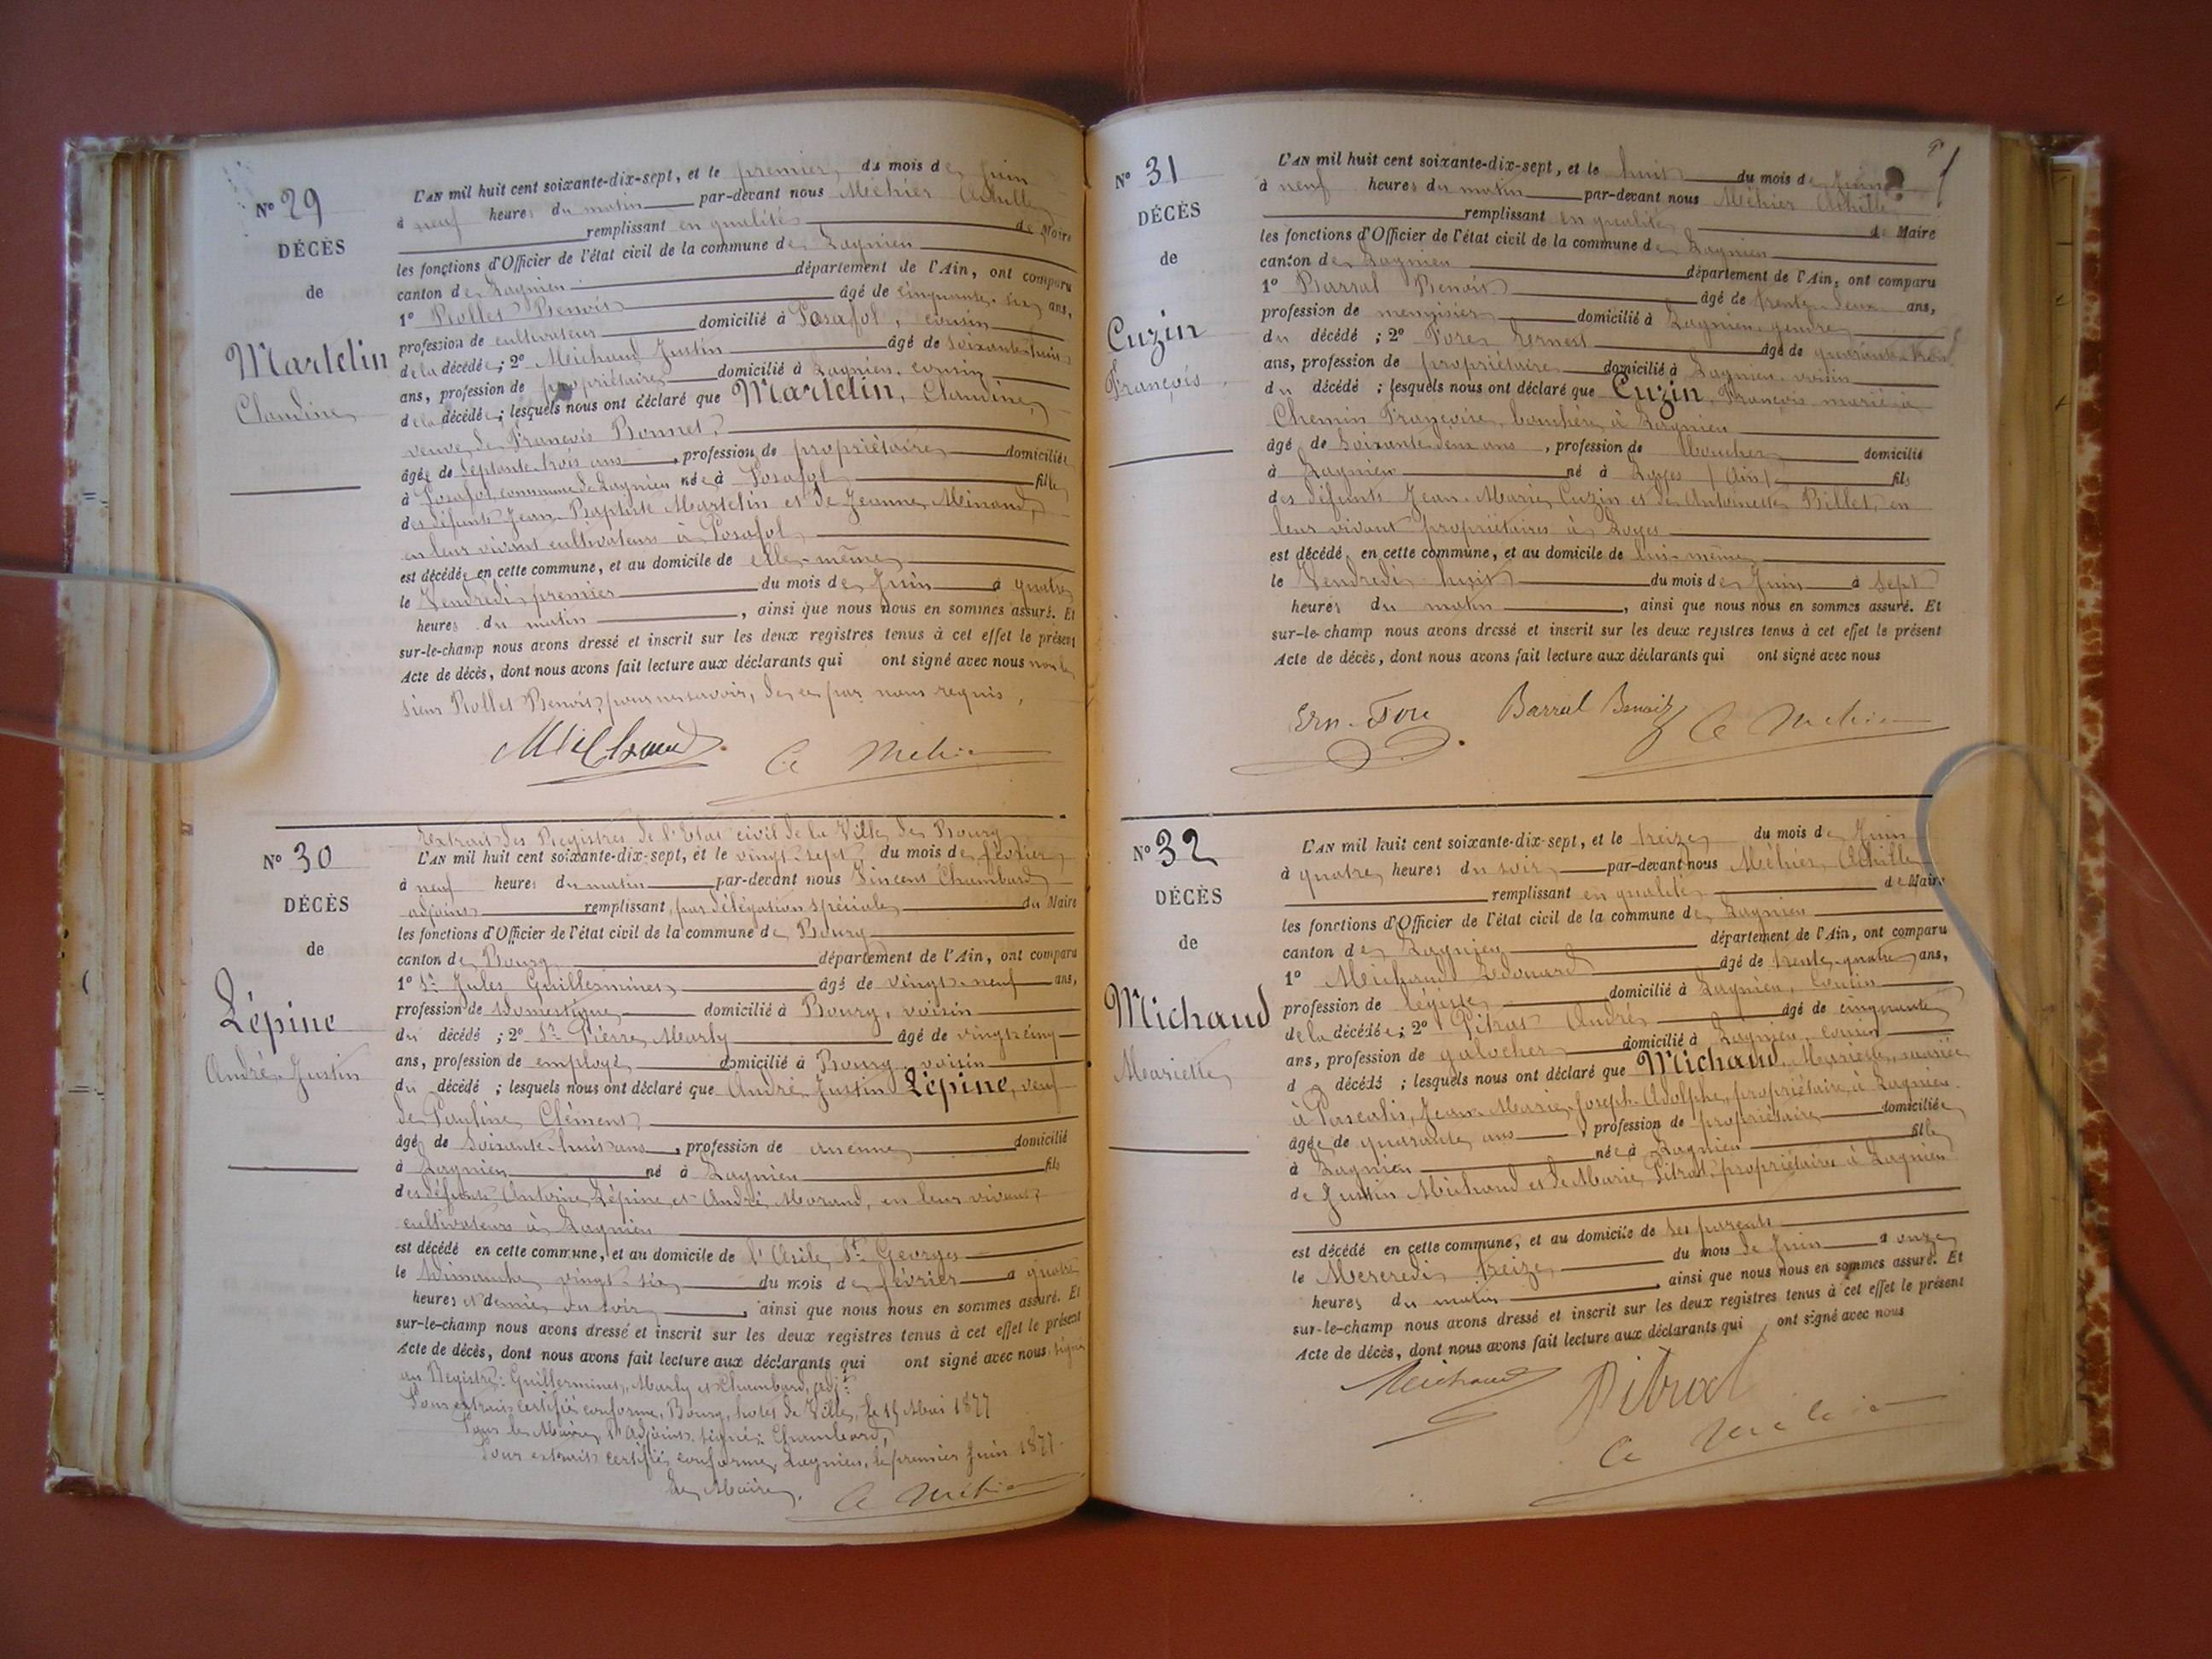 N° 29
DÉCÈS
de
Martelin
Claudine
L'AN mil huit cent soixante-dix-sept, et le premier du mois de juin
à neuf heures du matin par-devant nous Méhier Achille
remplissant en qualité de Maire
les fonctions d'Officier de l'état civil de la commune de Lagnieu
canton de Lagnieu département de l'Ain, ont comparu
1° Rollet Benoit âgé de cinquante-six ans,
profession de cultivateur domicilié à Posafol, cousin
de la décédée; 2° Michaud Justin âgé de soixante-huit
ans, profession de propriétaire domicilié à Lagnieu, cousin
de la décédée; lesquels nous ont déclaré que Martelin, Claudine,
veuve de François Bonnet,
âgée de septante-trois ans, profession de propriétaire domiciliée
à Posafol, commune de Lagnieu née à Posafol fille
des défunts Jean-Baptiste Martelin et de Jeanne Minand,
en leur vivant cultivateurs à Posafol,
est décédée en cette commune, et au domicile de elle-même
le Vendredi premier du mois de Juin à quatre
heures du matin, ainsi que nous nous en sommes assuré. Et
sur-le-champ nous avons dressé et inscrit sur les deux registres tenus à cet effet le présent
Acte de décès, dont nous avons fait lecture aux déclarants qui ont signé avec nous non le
sieur Rollet Benoit, pour ne savoir, de ce par nous requis,
Michaud A Méhier
N° 30
DÉCÈS
de
Lépine
André-Justin
Extrait des Registres de l'Etat civil de la Ville de Bourg
L'AN mil huit cent soixante-dix-sept, et le vingt-sept du mois de février
à neuf heures du matin par-devant nous Vincent Chambard
adjoint remplissant, par délégation spéciale du Maire
les fonctions d'Officier de l'état civil de la commune de Bourg
canton de Bourg département de l'Ain, ont comparu
1° Sr Jules Guillerminet âgé de vingt-neuf ans,
profession de domestique domicilié à Bourg, voisin
du décédé; 2° Sr Pierre Marly âgé de vingt-cinq
ans, profession de employé domicilié à Bourg, voisin
du décédé; lesquels nous ont déclaré que André-Justin Lépine, veuf
de Pauline Clément,
âgé de soixante-huit ans, profession de aucune domicilié
à Lagnieu né à Lagnieu fils
des défunts Antoine Lépine et André Morand, en leur vivant
cultivateurs à Lagnieu
est décédé en cette commune, et au domicile de l'Asile St Georges
le Dimanche vingt-six du mois de février à quatre
heures et demie du soir, ainsi que nous nous en sommes assuré. Et
sur-le-champ nous avons dressé et inscrit sur les deux registres tenus à cet effet le présent
Acte de décès, dont nous avons fait lecture aux déclarants qui ont signé avec nous. signé
au Registre: Guillerminet, Marly et Chambard, adjt
Pour extrait certifié conforme, Bourg, hotel de Ville, le 15 Mai 1877
Pour le Maire, Adjoint signé: Chambard,
Pour extrait certifié conforme, Lagnieu, le premier Juin 1877.
Le Maire, A Méhier
N° 31
DÉCÈS
de
Cuzin
François,
L'AN mil huit cent soixante-dix-sept, et le huit du mois de juin
à neuf heures du matin par-devant nous Méhier Achille
remplissant en qualité de Maire
les fonctions d'Officier de l'état civil de la commune de Lagnieu
canton de Lagnieu département de l'Ain, ont comparu
1° Barral Benoit âgé de trente-deux ans,
profession de menuisier domicilié à Lagnieu, gendre
du décédé; 2° Fore Ernest âgé de quarante-trois
ans, profession de propriétaire domicilié à Lagnieu, voisin
du décédé; lesquels nous ont déclaré que Cuzin, François marié à
Chemin Françoise, bouchère à Lagnieu
âgé de soixante-deux ans, profession de boucher domicilié
à Lagnieu né à Loyes (Ain) fils
des défunts Jean-Marie Cuzin et de Antoinette Billet, en
leur vivant propriétaires à Loyes
est décédé en cette commune, et au domicile de lui-même
le Vendredi huit du mois de Juin à sept
heures du matin, ainsi que nous nous en sommes assuré. Et
sur-le-champ nous avons dressé et inscrit sur les deux registres tenus à cet effet le présent
Acte de décès, dont nous avons fait lecture aux déclarants qui ont signé avec nous
Ern. Fore Barral Benoit A Méhier
N° 32
DÉCÈS
de
Michaud
Mariette
L'AN mil huit cent soixante-dix-sept, et le treize du mois de Juin
à quatre heures du soir par-devant nous Méhier Achille
remplissant en qualité de Maire
les fonctions d'Officier de l'état civil de la commune de Lagnieu
canton de Lagnieu département de l'Ain, ont comparu
1° Michaud Edouard âgé de trente-quatre ans,
profession de domicilié à Lagnieu, cousin
de la décédée; 2° Pitrat André âgé de cinquante
ans, profession de galocher domicilié à Lagnieu, cousin
d décédé; lesquels nous ont déclaré que Michaud, Mariette, mariée
à Pascalis, Jean-Marie-Joseph-Adolphe, propriétaire à Lagnieu
âgée de quarante ans, profession de propriétaire domiciliée
à Lagnieu née à Lagnieu fille
de Justin Michaud et de Marie Pitrat, propriétaire à Lagnieu
est décédé en cette commune, et au domicile de ses parents
le Mercredi treize du mois de Juin à onze
heures du matin, ainsi que nous nous en sommes assuré. Et
sur-le-champ nous avons dressé et inscrit sur les deux registres tenus à cet effet le présent
Acte de décès, dont nous avons fait lecture aux déclarants qui ont signé avec nous
Michaud Pitrat
A Méhier